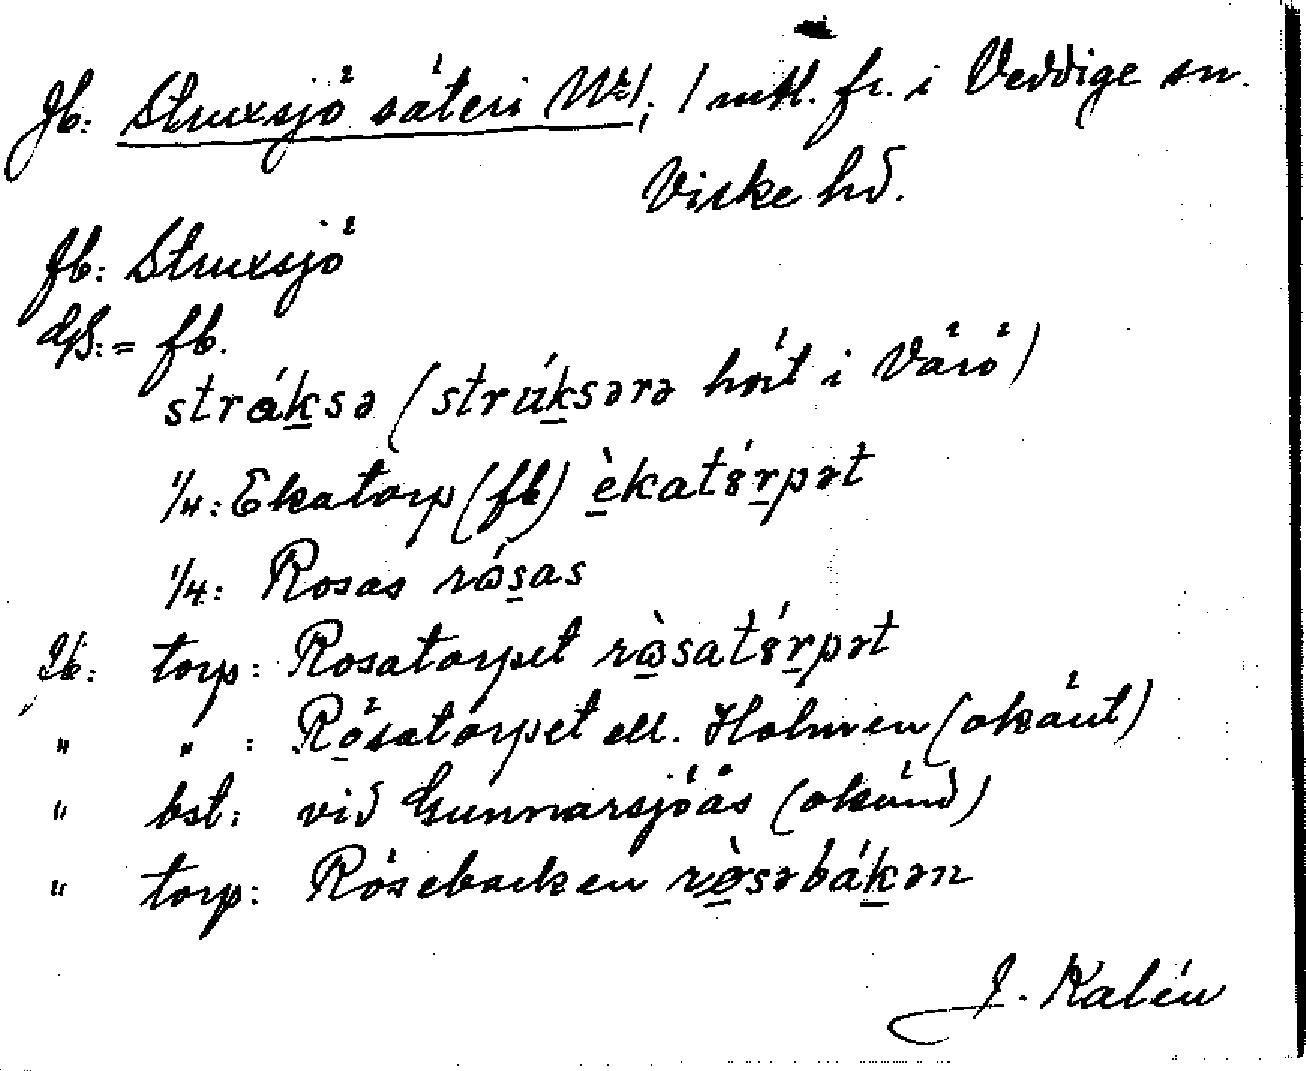 Jb: Struxsjö säteri Nr 1; 1 mtl. fr. i Veddige sn.
Viske hd.
fb: Struxsjö
= fb.
stráksə (strúksərə hört i Värö)
1/4: Ekatorp (fb) èkatórpət
1/4: Rosas rósas
Jb: torp: Rosatorpet ròsatórpət
" " : Rösatorpet ell. Holmen (okänt)
" bst: vid Gunnarsjöås (okänd)
" torp: Rösebacken rösəbákən
J. Kalén